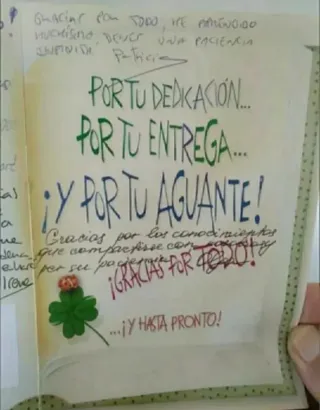 GRACIAS POR TODO, HE APRENDIDO
MUCHÍSIMO. TIENES UNA PACIENCIA
INFINITA.
Patricia
POR TU DEDICACIÓN...
POR TU ENTREGA...
¡Y POR TU AGUANTE!
Gracias por los conocimientos
que compartiste con
por su paciencia
¡GRACIAS POR TODO!
...¡Y HASTA PRONTO!
Irene